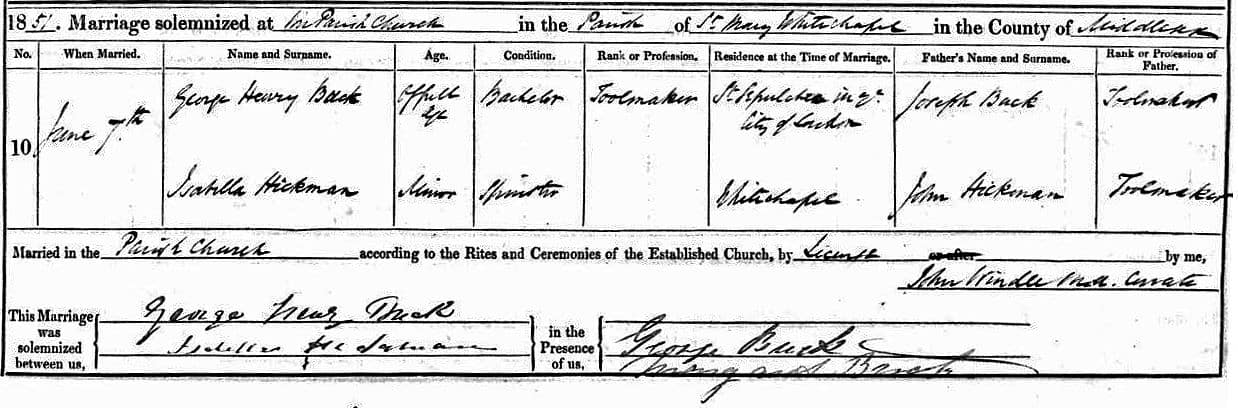 1851. Marriage solemnized at the Parish Church in the Parish of St. Mary Whitechapel in the County of Middlesex
No. When Married. Name and Surname. Age. Condition. Rank or Profession. Residence at the Time of Marriage. Father's Name and Surname. Rank or Profession of Father.
10 June 7th George Henry Buck Of full Age Bachelor Toolmaker St Sepulchre in ye City of London Joseph Buck Toolmaker
Isabella Hickman Minor Spinster Whitechapel John Hickman Toolmaker
Married in the Parish Church according to the Rites and Ceremonies of the Established Church, by Licence or after by me,
John Windle M.A. Curate
This Marriage was solemnized between us,
George Henry Buck
Isabella Hickman
in the Presence of us,
George Buck
Margaret Buck